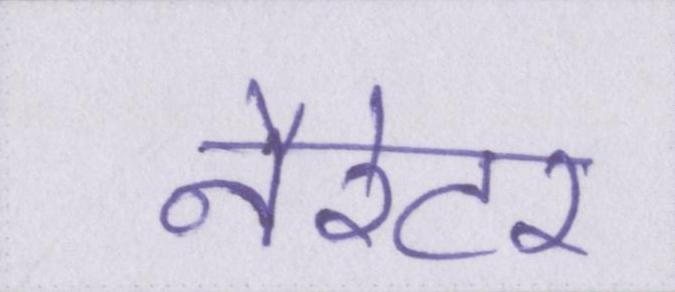 नैरेटर